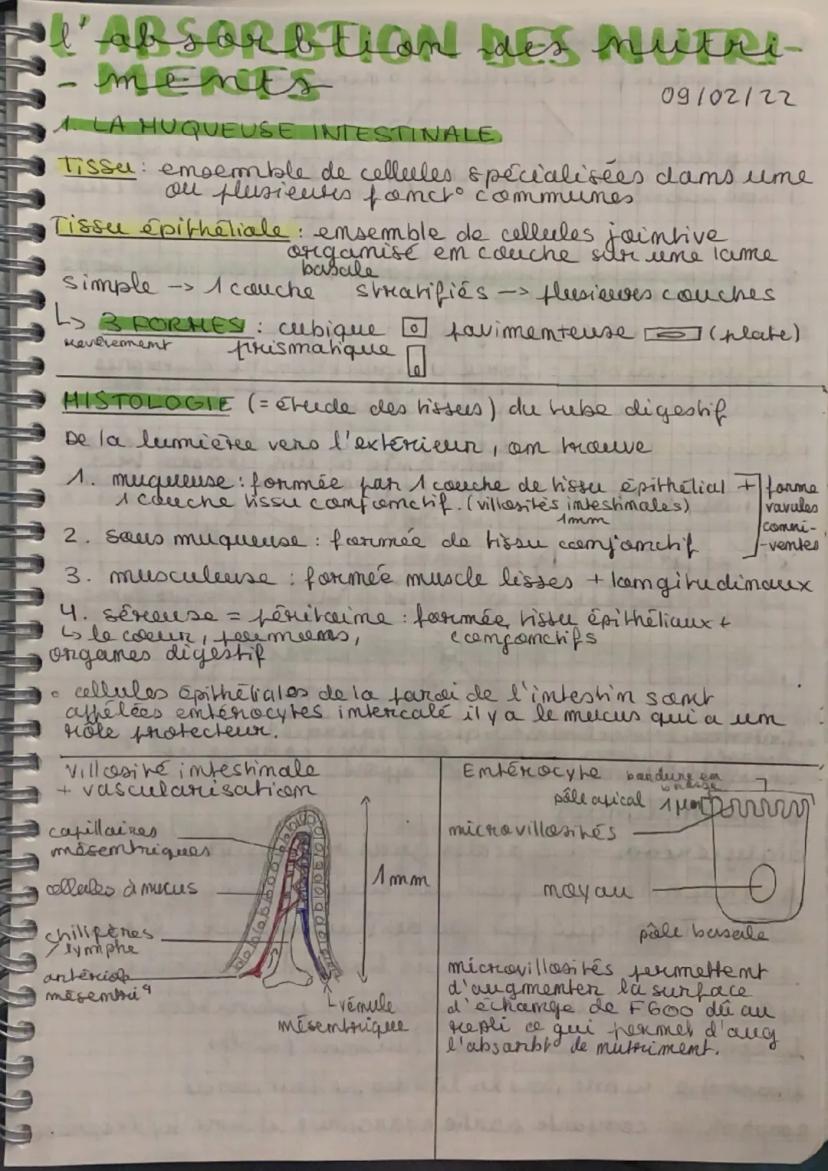 l'ABSORBTION DES NUTRI-
- MENTS
09/02/22
1. LA MUQUEUSE INTESTINALE
Tissu : ensemble de cellules spécialisées dans une
ou plusieurs fonct° communes
Tissu épithéliale : ensemble de cellules jointive
organisé en couche sur une lame
basale
simple -> 1 couche stratifiés -> plusieurs couches
↳ 3 FORMES : cubique pavimenteuse (plate)
revêrement prismatique
HISTOLOGIE (= étude des tissus) du tube digestif
De la lumière vers l'extérieur, on trouve
1. muqueuse : formée par 1 couche de tissu épithélial +
1 couche tissu conjonctif. (villosités intestinales)
1mm
forme
vavules
conni-
-ventes
2. sous muqueuse : formée de tissu conjonctif
3. musculeuse : formée muscle lisses + longitudinaux
4. séreuse = péritoine : formée tissu épithéliaux +
↳ le coeur, poumons, conjonctifs
organes digestif
• cellules épithéliales de la paroi de l'intestin sont
appélées entérocytes intercalé il y a le mucus qui a un
rôle protecteur.
villosité intestinale
+ vascularisation
capillaires
mésentriques
cellules à mucus
chilifères
lymphe
artériole
mésentriq
1mm
vénule
mésentrique
Entérocyte bordure en
brosse
pôle apical 1 µm
microvillosités
noyau
pôle basale
microvillosités permettent
d'augmenter la surface
d'échange de F600 dû au
repli ce qui permet d'aug
l'absorbt° de nutriment.